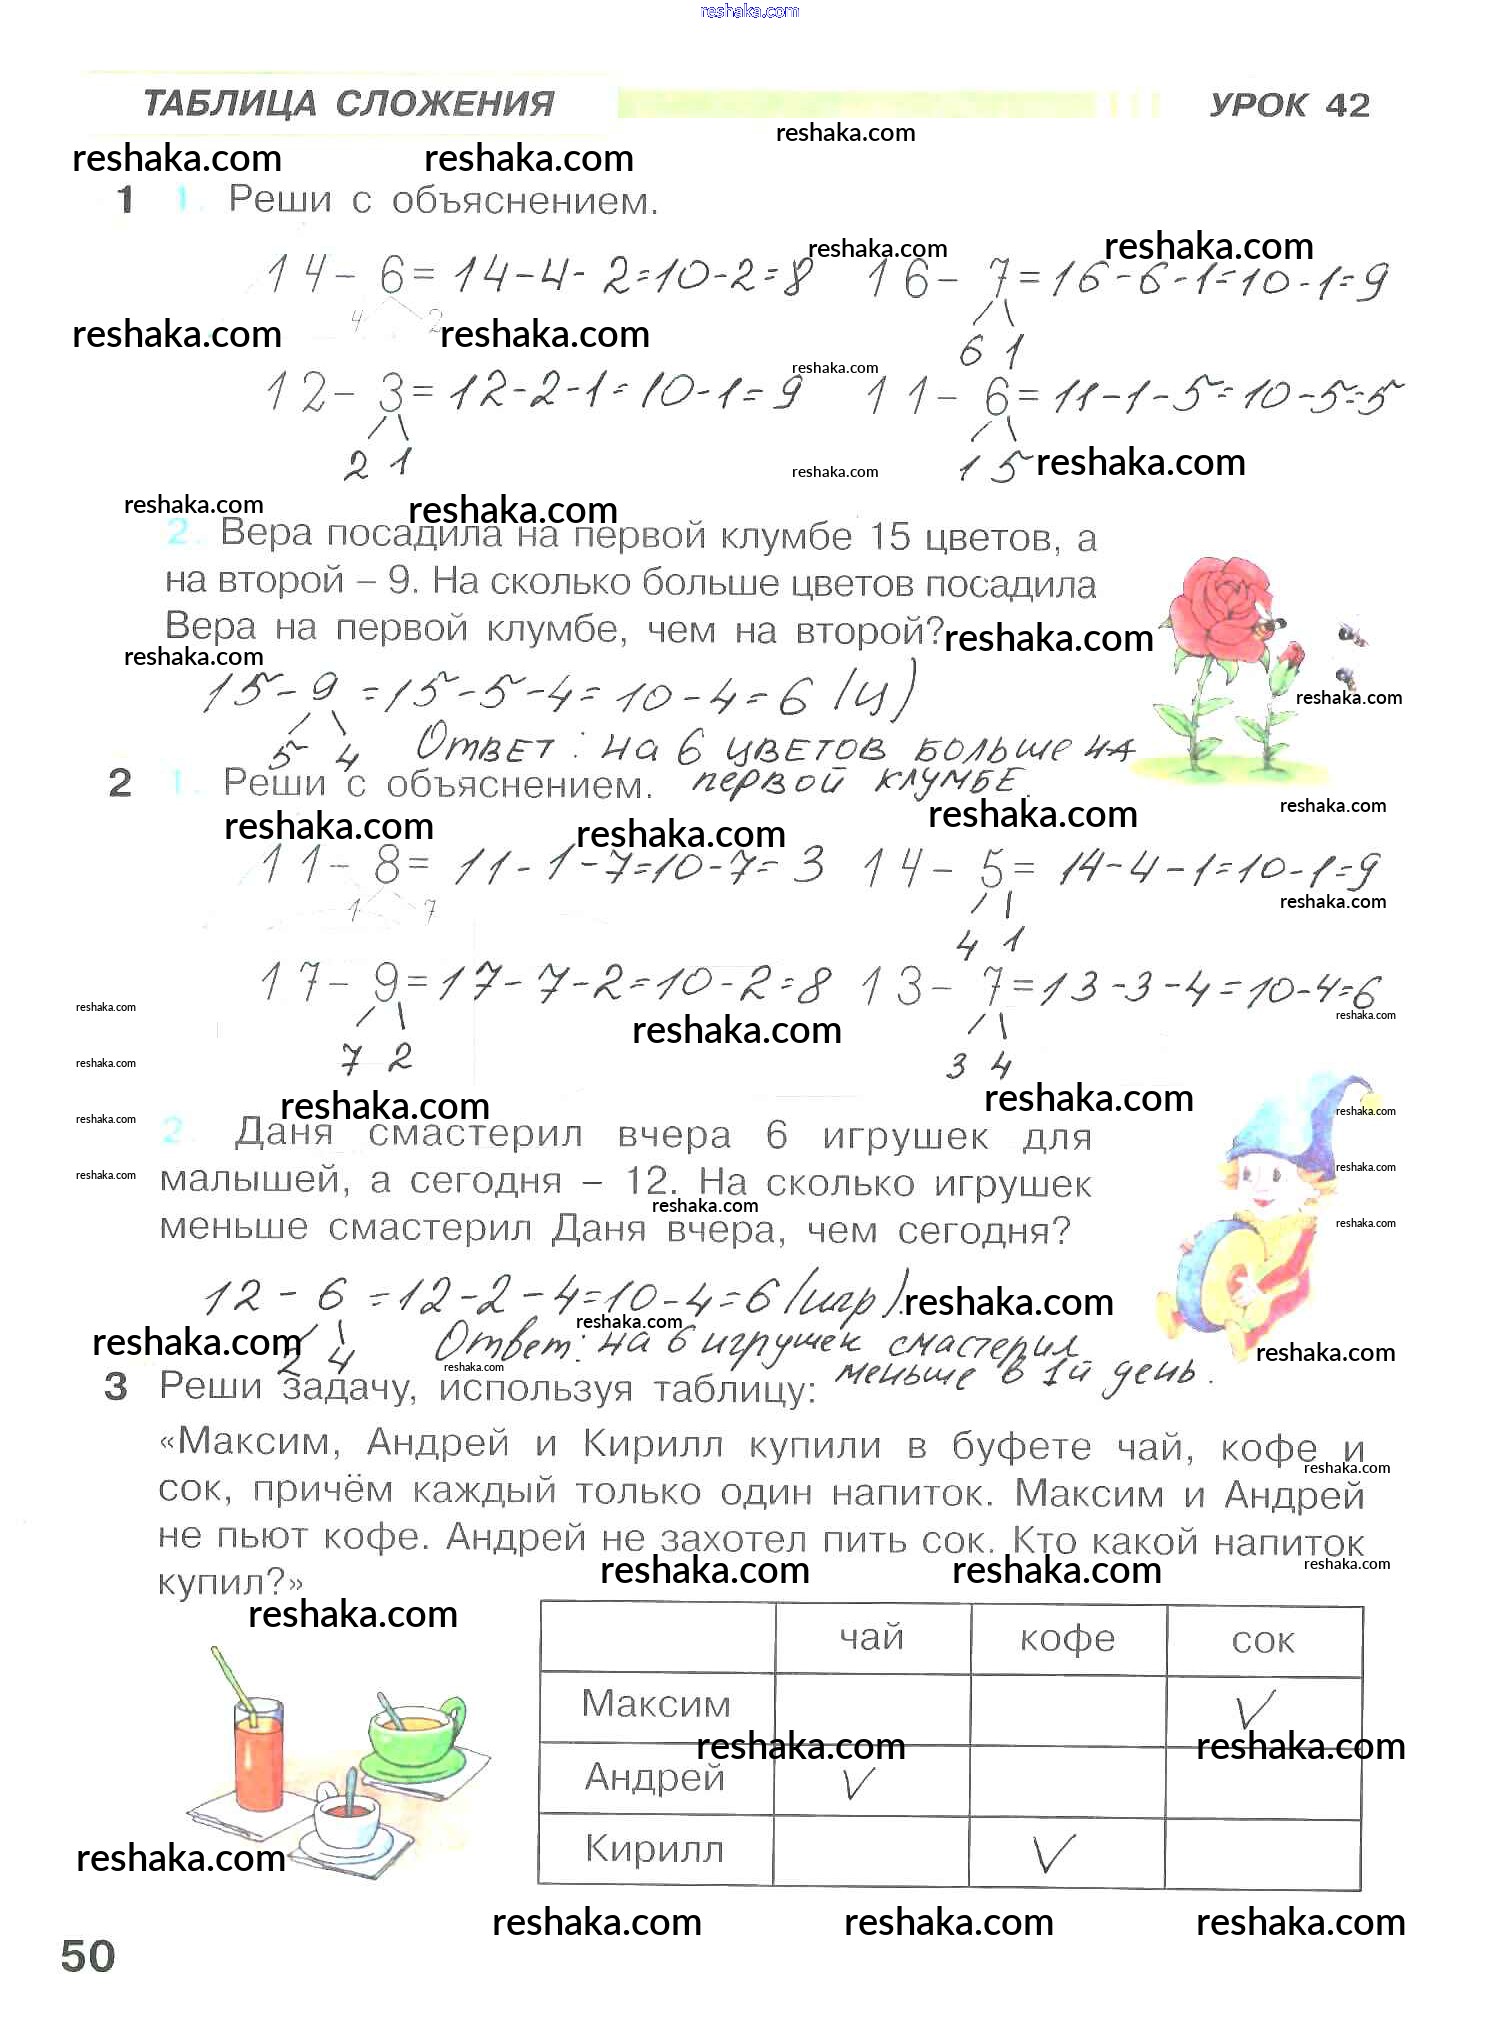 reshaka.com
ТАБЛИЦА СЛОЖЕНИЯ УРОК 42
reshaka.com
reshaka.com reshaka.com
1 1. Реши с объяснением.
reshaka.com reshaka.com
14 - 6 = 14-4-2=10-2=8 16 - 7 = 16-6-1=10-1=9
4 2 6 1
reshaka.com reshaka.com
reshaka.com
12 - 3 = 12-2-1=10-1=9 11 - 6 = 11-1-5=10-5=5
2 1 1 5
reshaka.com reshaka.com
reshaka.com reshaka.com
2. Вера посадила на первой клумбе 15 цветов, а
на второй – 9. На сколько больше цветов посадила
Вера на первой клумбе, чем на второй?
reshaka.com
reshaka.com
15-9=15-5-4=10-4=6 (ц)
reshaka.com
5 4 Ответ: на 6 цветов больше на
первой клумбе.
2 1. Реши с объяснением.
reshaka.com reshaka.com reshaka.com reshaka.com
11 - 8 = 11-1-7=10-7=3 14 - 5 = 14-4-1=10-1=9
1 7 4 1
reshaka.com
17 - 9 = 17-7-2=10-2=8 13 - 7 = 13-3-4=10-4=6
7 2 3 4
reshaka.com reshaka.com reshaka.com
reshaka.com
reshaka.com reshaka.com
reshaka.com reshaka.com
2. Даня смастерил вчера 6 игрушек для
малышей, а сегодня – 12. На сколько игрушек
меньше смастерил Даня вчера, чем сегодня?
reshaka.com reshaka.com
reshaka.com reshaka.com
12 - 6 = 12-2-4=10-4=6 (игр).
reshaka.com
reshaka.com
2 4 Ответ: на 6 игрушек смастерил
меньше в 1й день.
reshaka.com reshaka.com
reshaka.com
3 Реши задачу, используя таблицу:
«Максим, Андрей и Кирилл купили в буфете чай, кофе и
сок, причём каждый только один напиток. Максим и Андрей
не пьют кофе. Андрей не захотел пить сок. Кто какой напиток
купил?»
reshaka.com
reshaka.com reshaka.com reshaka.com
reshaka.com
чай кофе сок
Максим ✓
reshaka.com reshaka.com
Андрей ✓
Кирилл ✓
reshaka.com
reshaka.com reshaka.com reshaka.com
50